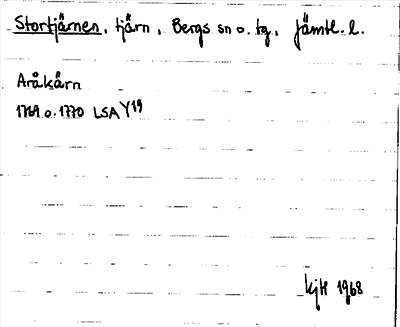 Stortjärnen, tjärn, Bergs sn o. tg, Jämtl. l.
Aråkärn
1769 o. 1770 LSA Y19
kjH 1968